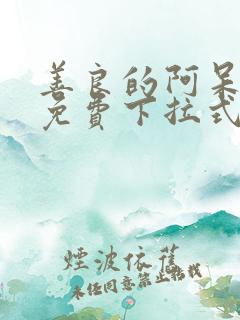 善良的阿呆
免費下拉式
煙波依舊
未经同意禁止转载